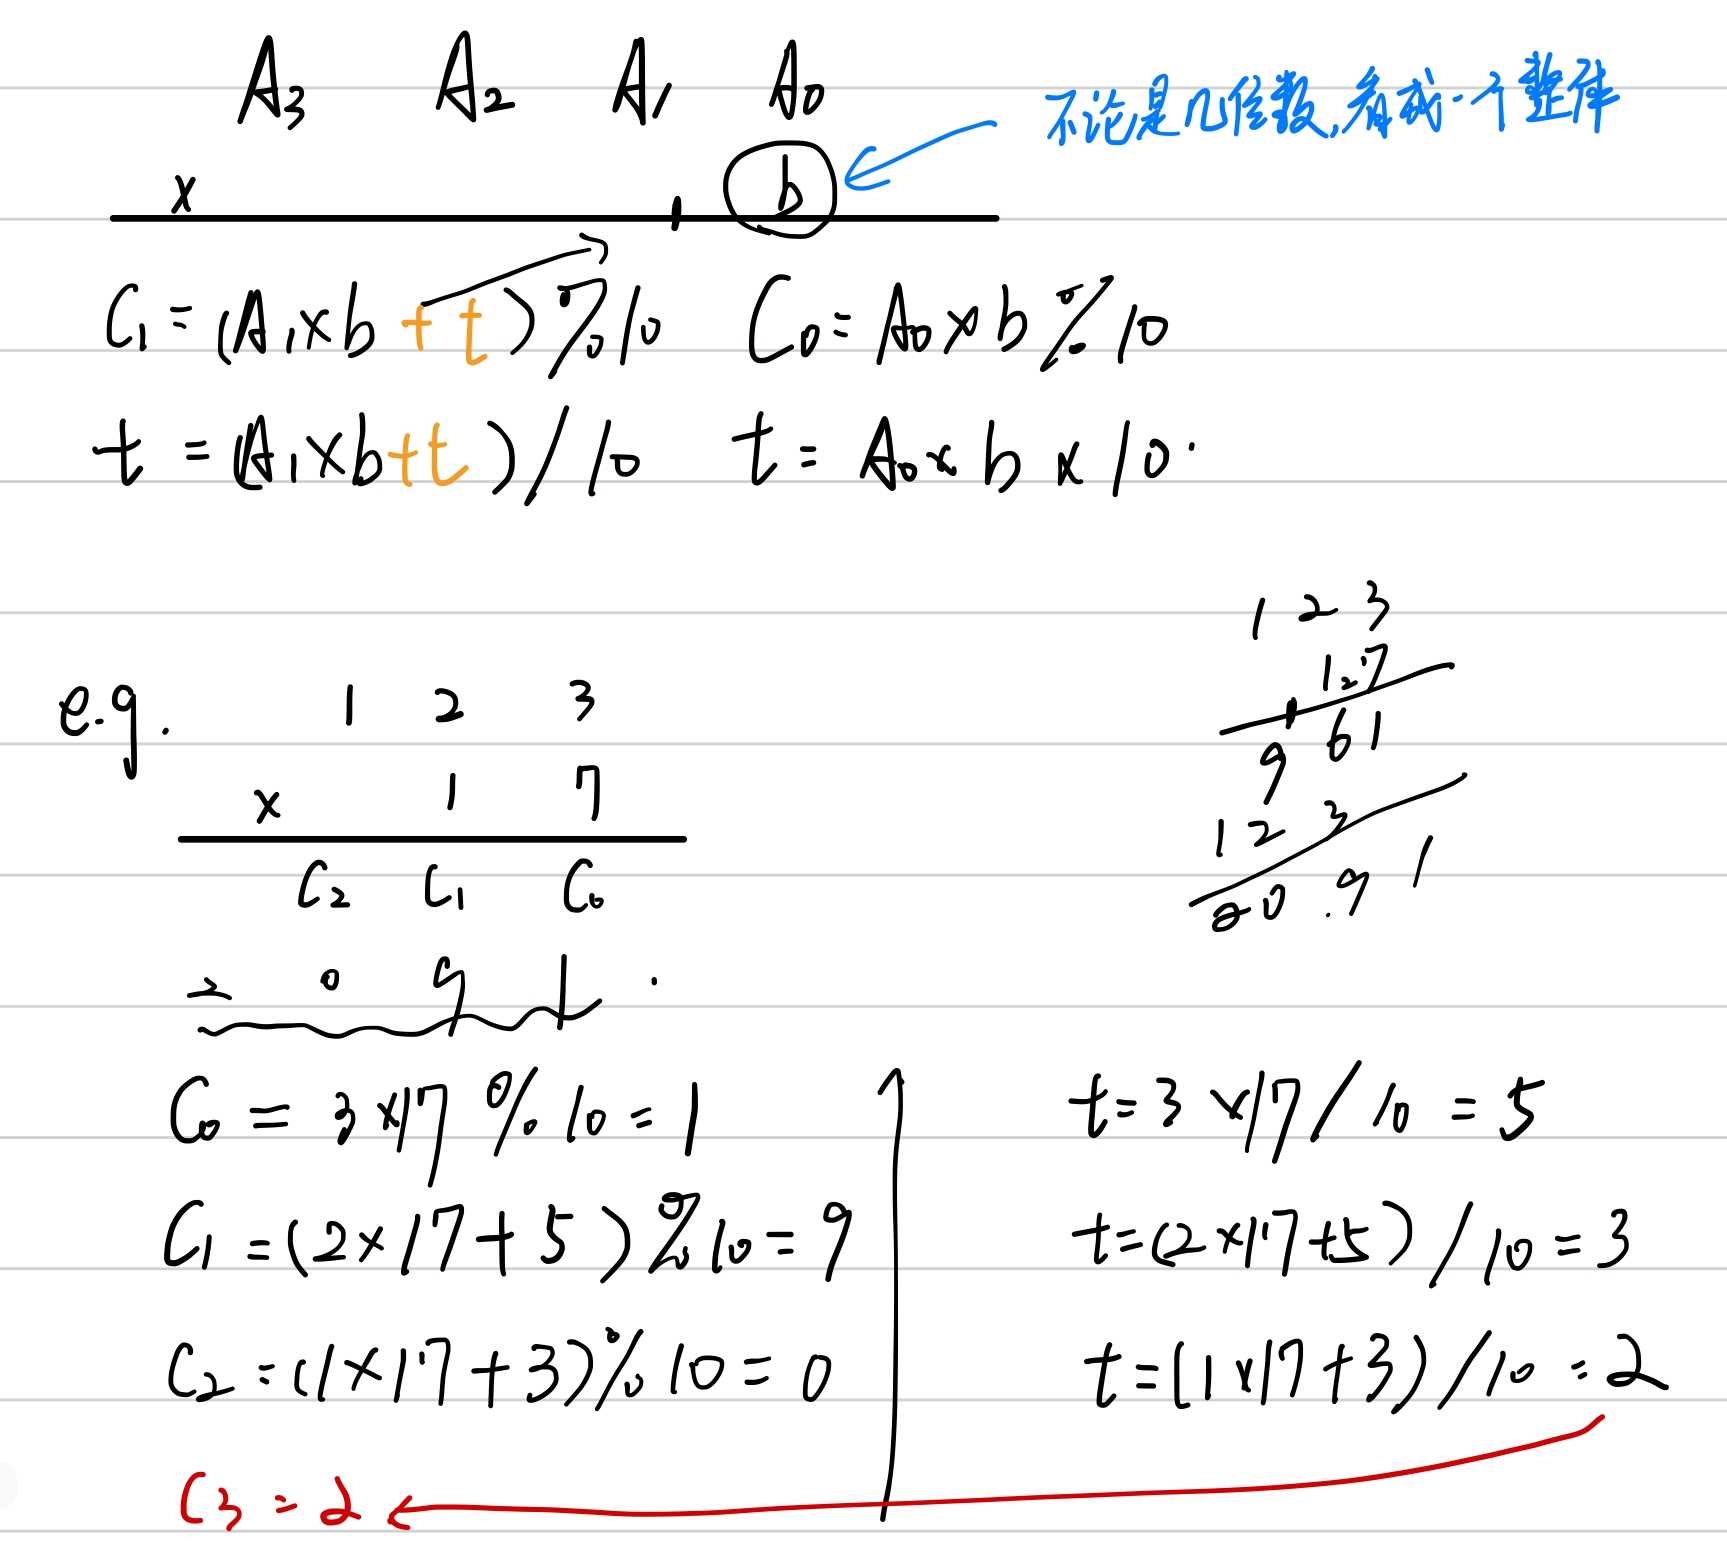 A₃ A₂ A₁ A₀
不论是几位数,看成一个整体
× b
C₁=(A₁×b+t)%10 C₀=A₀×b%10
t=(A₁×b+t)/10 t=A₀×b×10.
e.g. 1 2 3
× 1 7
C₂ C₁ C₀
2 0 9 1 .
1 2 3
1 2 7
9 6 1
1 2 3
2 0 9 1
C₀=3×17%10=1 t=3×17/10=5
C₁=(2×17+5)%10=9 t=(2×17+5)/10=3
C₂=(1×17+3)%10=0 t=(1×17+3)/10=2
C₃=2